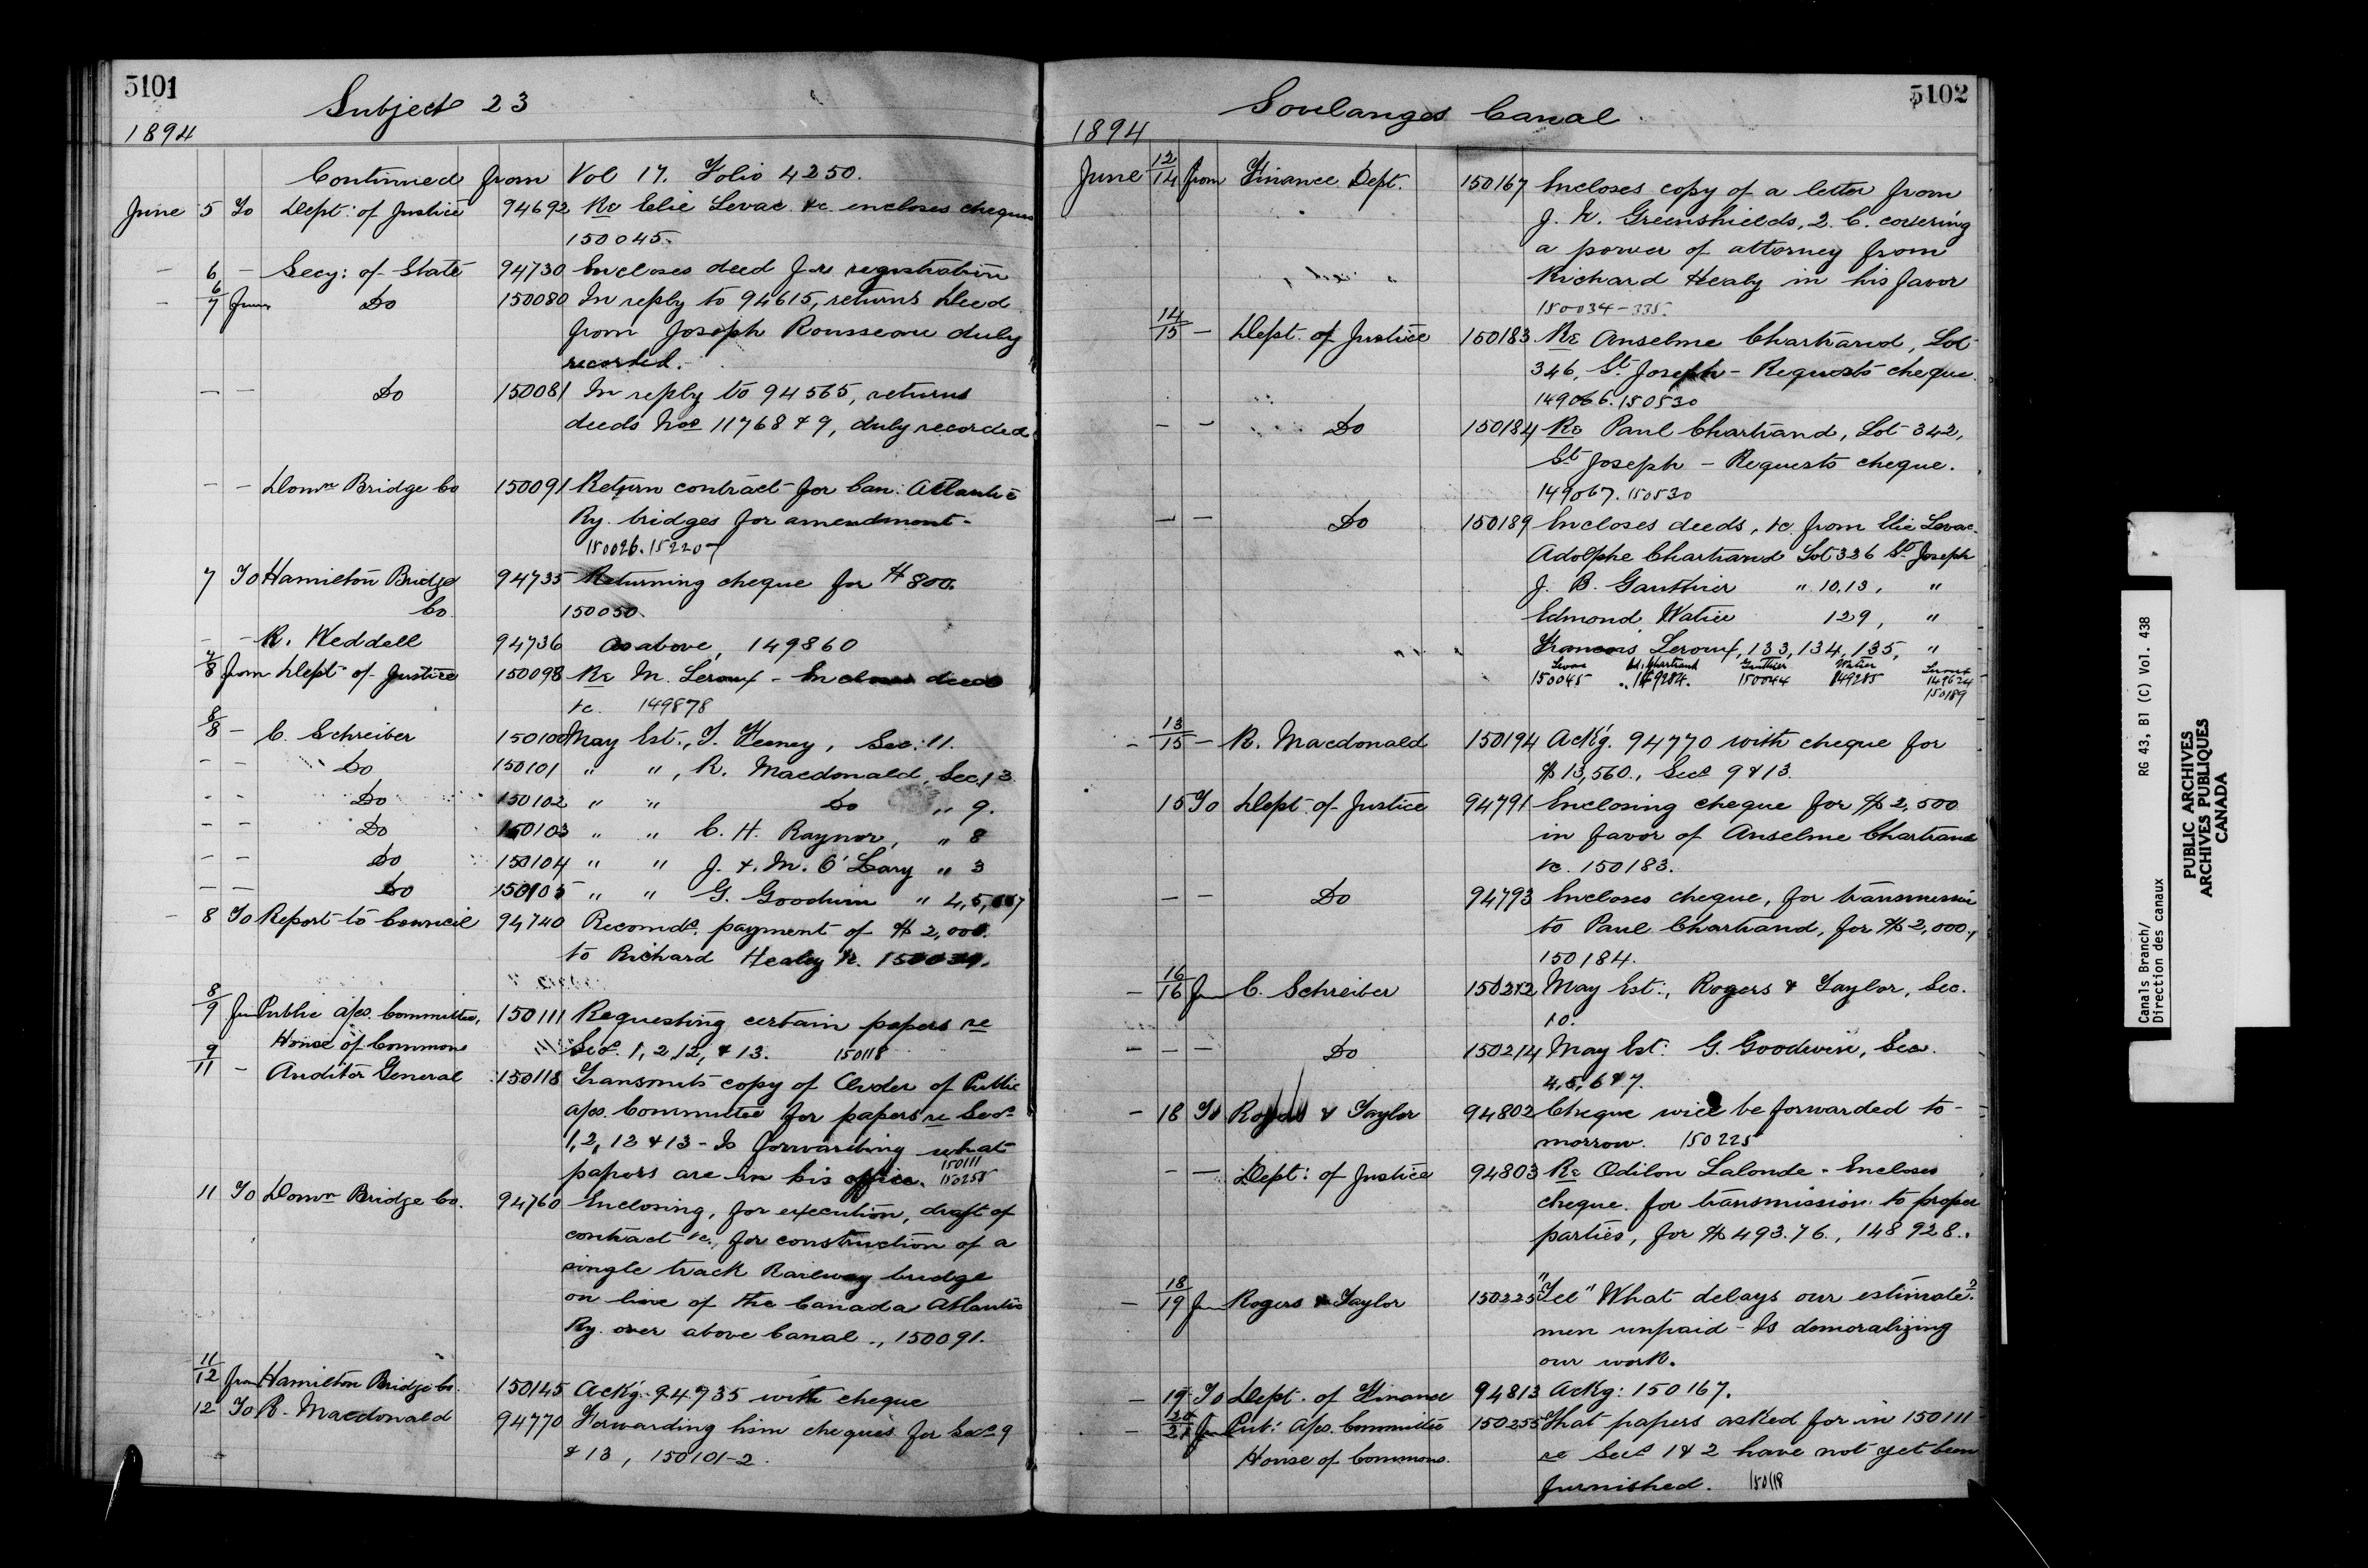 5101
Subject 23
1894
Continued from Vol 17. Folio 4250.
June 5 To Dept: of Justice 94692 Re Elie Levac &c. encloses cheques
150045.
— 6 — Secy: of State 94730 Encloses deed for registration
— 6/7 from Do 150080 In reply to 94615, returns Deed
from Joseph Rousseau duly
recorded.
— — Do 150081 In reply to 94565, returns
deeds Nos 11768 & 9, duly recorded
— — Domn Bridge Co 150091 Return contract for Can. Atlantic
Ry. bridges for amendment.
150026. 15220
7 To Hamilton Bridge 94735 Returning cheque for $800.
Co. 150050.
— — R. Weddell 94736 As above, 149860
7/8 from Dept of Justice 150098 Re M. Leroux - Encloses deed
&c. 149878
8/8 — C. Schreiber 150100 May Est., T. Feeney, Sec. 11.
— — Do 150101 " " , R. Macdonald, Sec. 13
— — Do 150102 " " Do " 9.
— — Do 150103 " " C. H. Raynor, " 8
— — Do 150104 " " J. & M. O'Leary " 3
— — Do 150105 " " G. Goodwin " 4, 5, 6&7
— 8 To Report to Council 94740 Recomds. payment of $2,000.
to Richard Healey Jr. 150034.
8/9 from Public a/cs. Committee, 150111 Requesting certain papers re
House of Commons Secs. 1, 2, 12, & 13. 150118
9/11 — Auditor General 150118 Transmits copy of Order of Public
a/cs. Committee for papers re Secs.
1, 2, 12 & 13 - Is forwarding what
papers are in his office. 150111
150255
11 To Domn Bridge Co. 94760 Enclosing, for execution, draft of
contract &c., for construction of a
single track Railway bridge
on line of the Canada Atlantic
Ry. over above Canal., 150091.
11/12 from Hamilton Bridge Co. 150145 Ackg. 94735 with cheque
12 To R. Macdonald 94770 Forwarding him cheques for Secs 9
& 13, 150101-2.
5102
Soulanges Canal
1894
June 12/14 from Finance Dept. 150167 Encloses copy of a letter from
J. N. Greenshields, Q. C. covering
a power of attorney from
Richard Healy in his favor
150034-335.
14/15 — Dept. of Justice 150183 Re Anselme Chartrand, Lot
346, St. Joseph - Requests cheque.
149066. 150530
— — Do 150184 Re Paul Chartrand, Lot 342,
St Joseph - Requests cheque.
149067. 150530
— — Do 150189 Encloses deeds, &c from Elie Levac
Adolphe Chartrand Lot 336 St. Joseph
J. B. Gauthier " 10, 13, "
Edmond Watier 129, "
Francois Leroux, 133, 134, 135, "
Levac Ad: Chartrand Gauthier Watier Leroux
150045 149284. 150044 149285 149624
150189
— 13/15 — R. Macdonald 150194 Ackg. 94770 with cheque for
$13,560., Secs 9 & 13.
15 To Dept. of Justice 94791 Enclosing cheque for $2,500
in favor of Anselme Chartrand
&c. 150183.
— — Do 94793 Encloses cheque, for transmission
to Paul Chartrand, for $2,000,
150184.
— 16/16 from C. Schreiber 150212 May Est:, Rogers & Taylor, Sec.
10.
— — — Do 150214 May Est: G. Goodwin, Secs.
4, 5, 6 & 7.
— 18 To Rogers & Taylor 94802 Cheque will be forwarded to-
morrow. 150225
— — Dept: of Justice 94803 Re Odilon Lalonde - Encloses
cheque for transmission to proper
parties, for $493.76., 148928.
— 18/19 from Rogers & Taylor 150225 "Tel" What delays our estimate?
men unpaid - Is demoralizing
our work.
— 19 To Dept. of Finance 94813 Ackg: 150167.
— 20/21 from Pub: a/cs. Committee 150255 That papers asked for in 150111
House of Commons. re Secs 1 & 2 have not yet been
furnished. 150118
Canals Branch/ RG 43, B1 (C) Vol. 438
Direction des canaux
PUBLIC ARCHIVES
ARCHIVES PUBLIQUES
CANADA